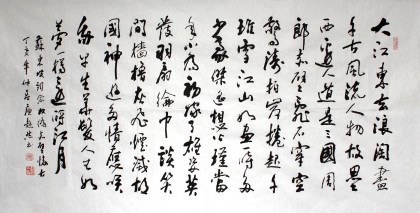 大江東去浪淘盡
千古風流人物故壘
西邊人道是三國周
郎赤壁亂石穿空
驚濤拍岸捲起千
堆雪江山如畫一時多
少豪傑遙想公瑾當
年小喬初嫁了雄姿英
發羽扇綸巾談笑
間檣櫓灰飛煙滅故
國神遊多情應笑
我早生華髮人生如
夢一樽還酹江月
蘇東坡詞念奴嬌赤壁懷古
丁亥年仲書